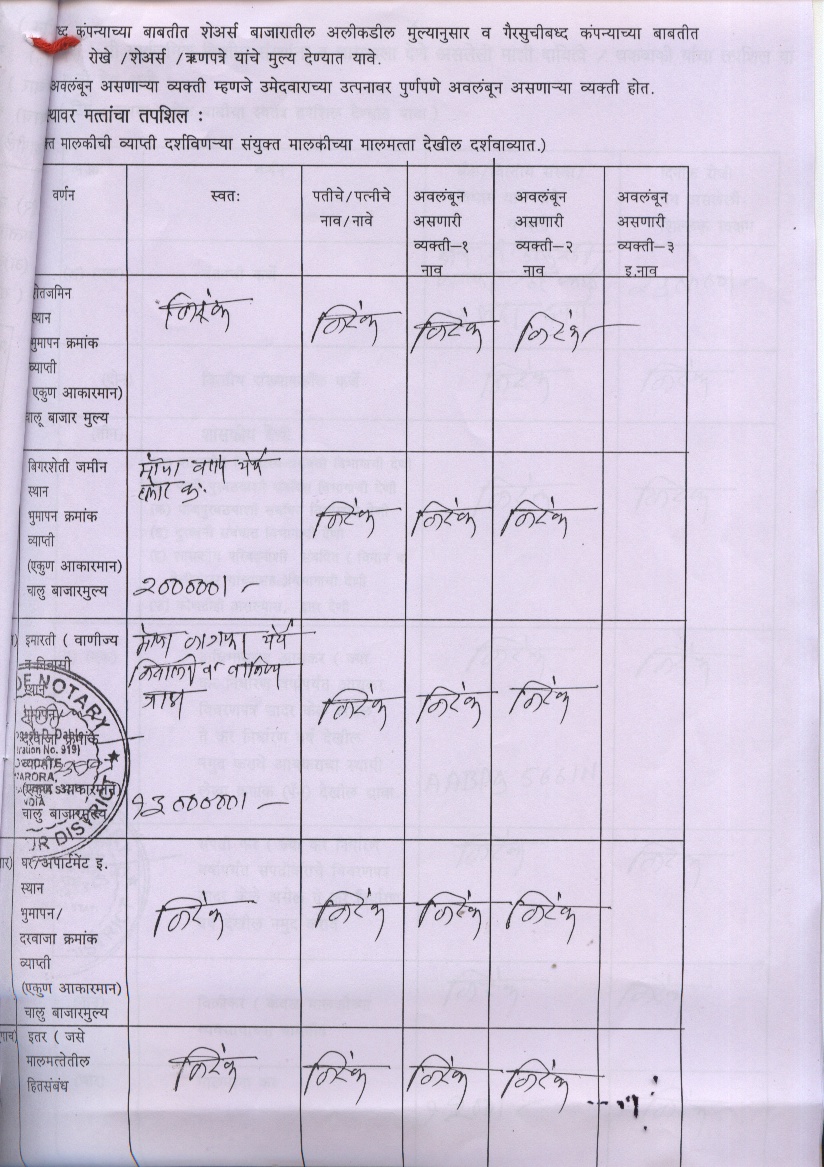 ध्द कंपन्याच्या बाबतीत शेअर्स बाजारातील अलीकडील मुल्यानुसार व गैरसुचीबध्द कंपन्याच्या बाबतीत
रोखे /शेअर्स /ऋणपत्रे यांचे मुल्य देण्यात यावे.
अवलंबून असणाऱ्या व्यक्ती म्हणजे उमेदवाराच्या उत्पनावर पुर्णपणे अवलंबून असणाऱ्या व्यक्ती होत.
स्थावर मत्तांचा तपशिल :
क्त मालकीची व्याप्ती दर्शविणऱ्या संयुक्त मालकीच्या मालमत्ता देखील दर्शवाव्यात.)
वर्णन
स्वतः
पतीचे/पत्नीचे
नाव/नावे
अवलंबून
असणारी
व्यक्ती-१
नाव
अवलंबून
असणारी
व्यक्ती-२
नाव
अवलंबून
असणारी
व्यक्ती-३
इ.नाव
शेतजमिन
स्थान
भुमापन क्रमांक
व्याप्ती
(एकुण आकारमान)
चालू बाजार मुल्य
निरंक
निरंक
निरंक
निरंक
बिगरशेती जमीन
स्थान
भुमापन क्रमांक
व्याप्ती
(एकुण आकारमान)
चालु बाजारमुल्य
मौजा येथे
२०००००/-
निरंक
निरंक
निरंक
इमारती ( वाणीज्य
व निवासी
स्थान
भुमापन
दरवाजा क्रमांक
व्याप्ती
(एकुण आकारमान)
चालु बाजारमुल्य
मौजा येथे
निवासी व
जागा
१३०००००/-
निरंक
निरंक
निरंक
OF NOTARY
ration No. 919)
VOCATE
WARORA
UR DISTRICT
घर/अपार्टमेंट इ.
स्थान
भुमापन/
दरवाजा क्रमांक
व्याप्ती
(एकुण आकारमान)
चालु बाजारमुल्य
निरंक
निरंक
निरंक
निरंक
इतर ( जसे
मालमत्तेतील
हितसंबंध
निरंक
निरंक
निरंक
निरंक